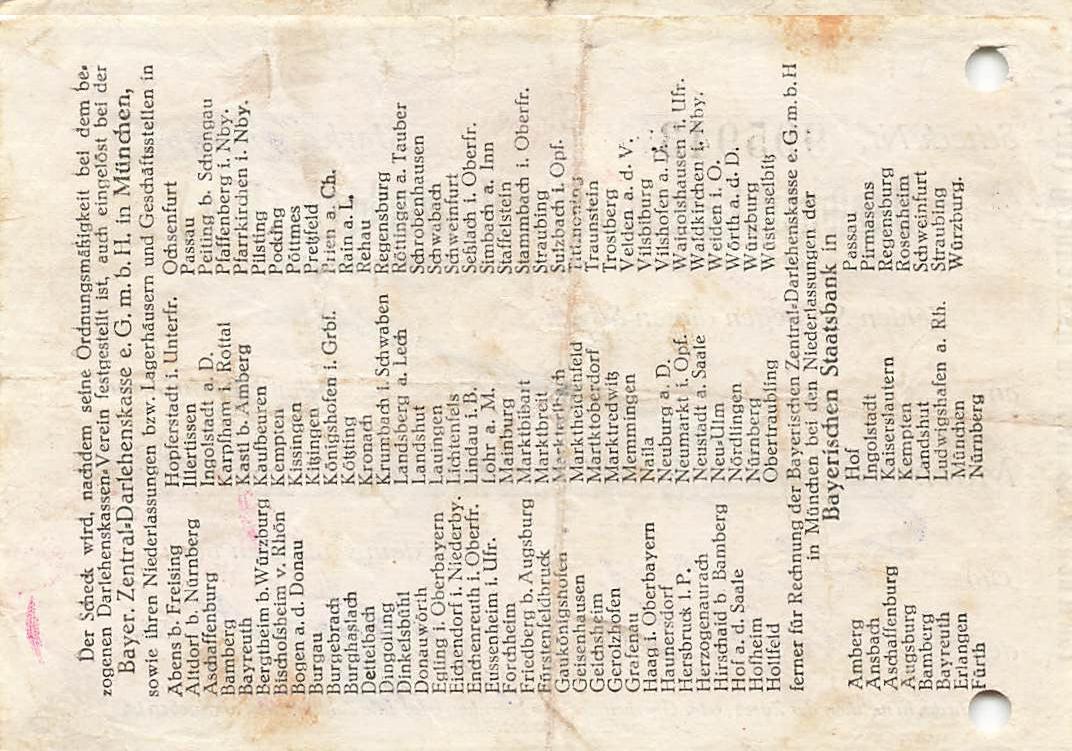 Der Scheck wird, nachdem seine Ordnungsmäßigkeit bei dem be-
zogenen Darlehenskassen-Verein festgestellt ist, auch eingelöst bei der
Bayer. Zentral-Darlehenskasse e. G. m. b. H. in München,
sowie ihren Niederlassungen bzw. Lagerhäusern und Geschäftsstellen in
Abens b. Freising
Altdorf b. Nürnberg
Aschaffenburg
Bamberg
Bayreuth
Bergtheim b. Würzburg
Bischofsheim v. Rhön
Bogen a. d. Donau
Burgau
Burgebrach
Burghaslach
Dettelbach
Dingolfing
Dinkelsbühl
Donauwörth
Egling i. Oberbayern
Eichendorf i. Niederby.
Enchenreuth i. Oberfr.
Eussenheim i. Ufr.
Forchheim
Friedberg b. Augsburg
Fürstenfeldbruck
Gaukönigshofen
Geisenhausen
Gelchsheim
Gerolzhofen
Grafenau
Haag i. Oberbayern
Haunersdorf
Hersbruck l. P.
Herzogenaurach
Hirschaid b. Bamberg
Hof a. d. Saale
Hofheim
Hollfeld
Hopferstadt i. Unterfr.
Illertissen
Ingolstadt a. D.
Karpfham i. Rottal
Kastl b. Amberg
Kaufbeuren
Kempten
Kissingen
Kitzingen
Königshofen i. Grbf.
Kötzting
Kronach
Krumbach i. Schwaben
Landsberg a. Lech
Landshut
Lauingen
Lichtenfels
Lindau i. B.
Lohr a. M.
Mainburg
Marktbibart
Marktbreit
Markterlbach
Marktheidenfeld
Marktoberdorf
Marktredwitz
Memmingen
Naila
Neuburg a. D.
Neumarkt i. Opf.
Neustadt a. Saale
Neu-Ulm
Nördlingen
Nürnberg
Obertraubling
Ochsenfurt
Passau
Peiting b. Schongau
Pfaffenberg i. Nby.
Pfarrkirchen i. Nby.
Pilsting
Pocking
Pöttmes
Pretzfeld
Prien a. Ch.
Rain a. L.
Rehau
Regensburg
Röttingen a. Tauber
Schrobenhausen
Schwabach
Schweinfurt
Seßlach i. Oberfr.
Simbach a. Inn
Staffelstein
Stammbach i. Oberfr.
Straubing
Sulzbach i. Opf.
Tittmoning
Traunstein
Trostberg
Velden a. d. V.
Vilsbiburg
Vilshofen a. D.
Waigolshausen i. Ufr.
Waldkirchen i. Nby.
Weiden i. O.
Wörth a. d. D.
Würzburg
Wüstenselbitz
ferner für Rechnung der Bayerischen Zentral-Darlehenskasse e. G. m. b. H
in München bei den Niederlassungen der
Bayerischen Staatsbank in
Amberg
Ansbach
Aschaffenburg
Augsburg
Bamberg
Bayreuth
Erlangen
Fürth
Hof
Ingolstadt
Kaiserslautern
Kempten
Landshut
Ludwigshafen a. Rh.
München
Nürnberg
Passau
Pirmasens
Regensburg
Rosenheim
Schweinfurt
Straubing
Würzburg.